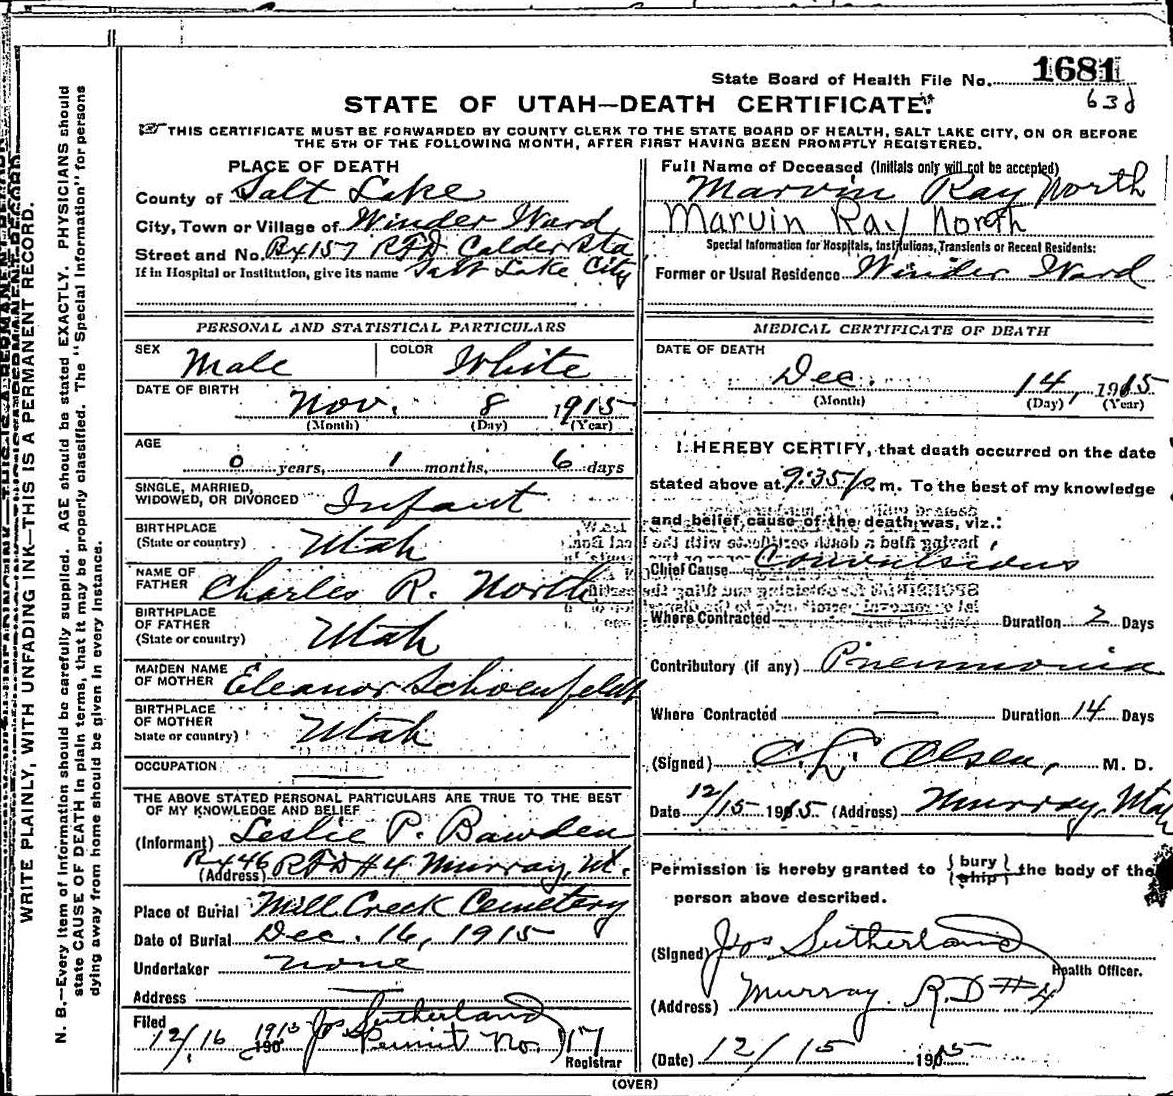 State Board of Health File No. 1681
63d
STATE OF UTAH—DEATH CERTIFICATE.
THIS CERTIFICATE MUST BE FORWARDED BY COUNTY CLERK TO THE STATE BOARD OF HEALTH, SALT LAKE CITY, ON OR BEFORE
THE 5TH OF THE FOLLOWING MONTH, AFTER FIRST HAVING BEEN PROMPTLY REGISTERED.
WRITE PLAINLY, WITH UNFADING INK—THIS IS A PERMANENT RECORD.
N. B.—Every item of information should be carefully supplied. AGE should be stated EXACTLY. PHYSICIANS should
state CAUSE OF DEATH in plain terms, that it may be properly classified. The "Special Information" for persons
dying away from home should be given in every instance.
PLACE OF DEATH
County of Salt Lake
City, Town or Village of Winder Ward
Street and No. Bx 157 RFD Calder Sta
If in Hospital or Institution, give its name Salt Lake City
PERSONAL AND STATISTICAL PARTICULARS
SEX Male COLOR White
DATE OF BIRTH
Nov. 8 1915
(Month) (Day) (Year)
AGE
0 years, 1 months, 6 days
SINGLE, MARRIED,
WIDOWED, OR DIVORCED Infant
BIRTHPLACE
(State or country) Utah
NAME OF
FATHER Charles R. North
BIRTHPLACE
OF FATHER
(State or country) Utah
MAIDEN NAME
OF MOTHER Eleanor Schoenfeldt
BIRTHPLACE
OF MOTHER
State or country) Utah
OCCUPATION
THE ABOVE STATED PERSONAL PARTICULARS ARE TRUE TO THE BEST
OF MY KNOWLEDGE AND BELIEF
(Informant) Leslie P. Bawden
(Address) Bx 46 RFD #4 Murray, Ut.
Place of Burial Mill Creek Cemetery
Date of Burial Dec. 16, 1915
Undertaker none
Address
Filed
12/16 1915 190 Jos Sutherland
Permit No. 117
Registrar
Full Name of Deceased (Initials only will not be accepted)
Marvin Ray North
Marvin Ray North
Special Information for Hospitals, Institutions, Transients or Recent Residents:
Former or Usual Residence Winder Ward
MEDICAL CERTIFICATE OF DEATH
DATE OF DEATH
Dec. 14, 1915
(Month) (Day) (Year)
I HEREBY CERTIFY, that death occurred on the date
stated above at 9:35 p.m. To the best of my knowledge
and belief, cause of the death was, viz.:
Chief Cause Convulsions
Where Contracted Duration 2 Days
Contributory (if any) Pneumonia
Where Contracted Duration 14 Days
(Signed) C. L. Olsen, M. D.
Date 12/15 1915 (Address) Murray, Utah
Permission is hereby granted to { bury ship } the body of the
person above described.
(Signed) Jos Sutherland
Health Officer.
(Address) Murray R.D #4
(Date) 12/15 1915
(OVER)